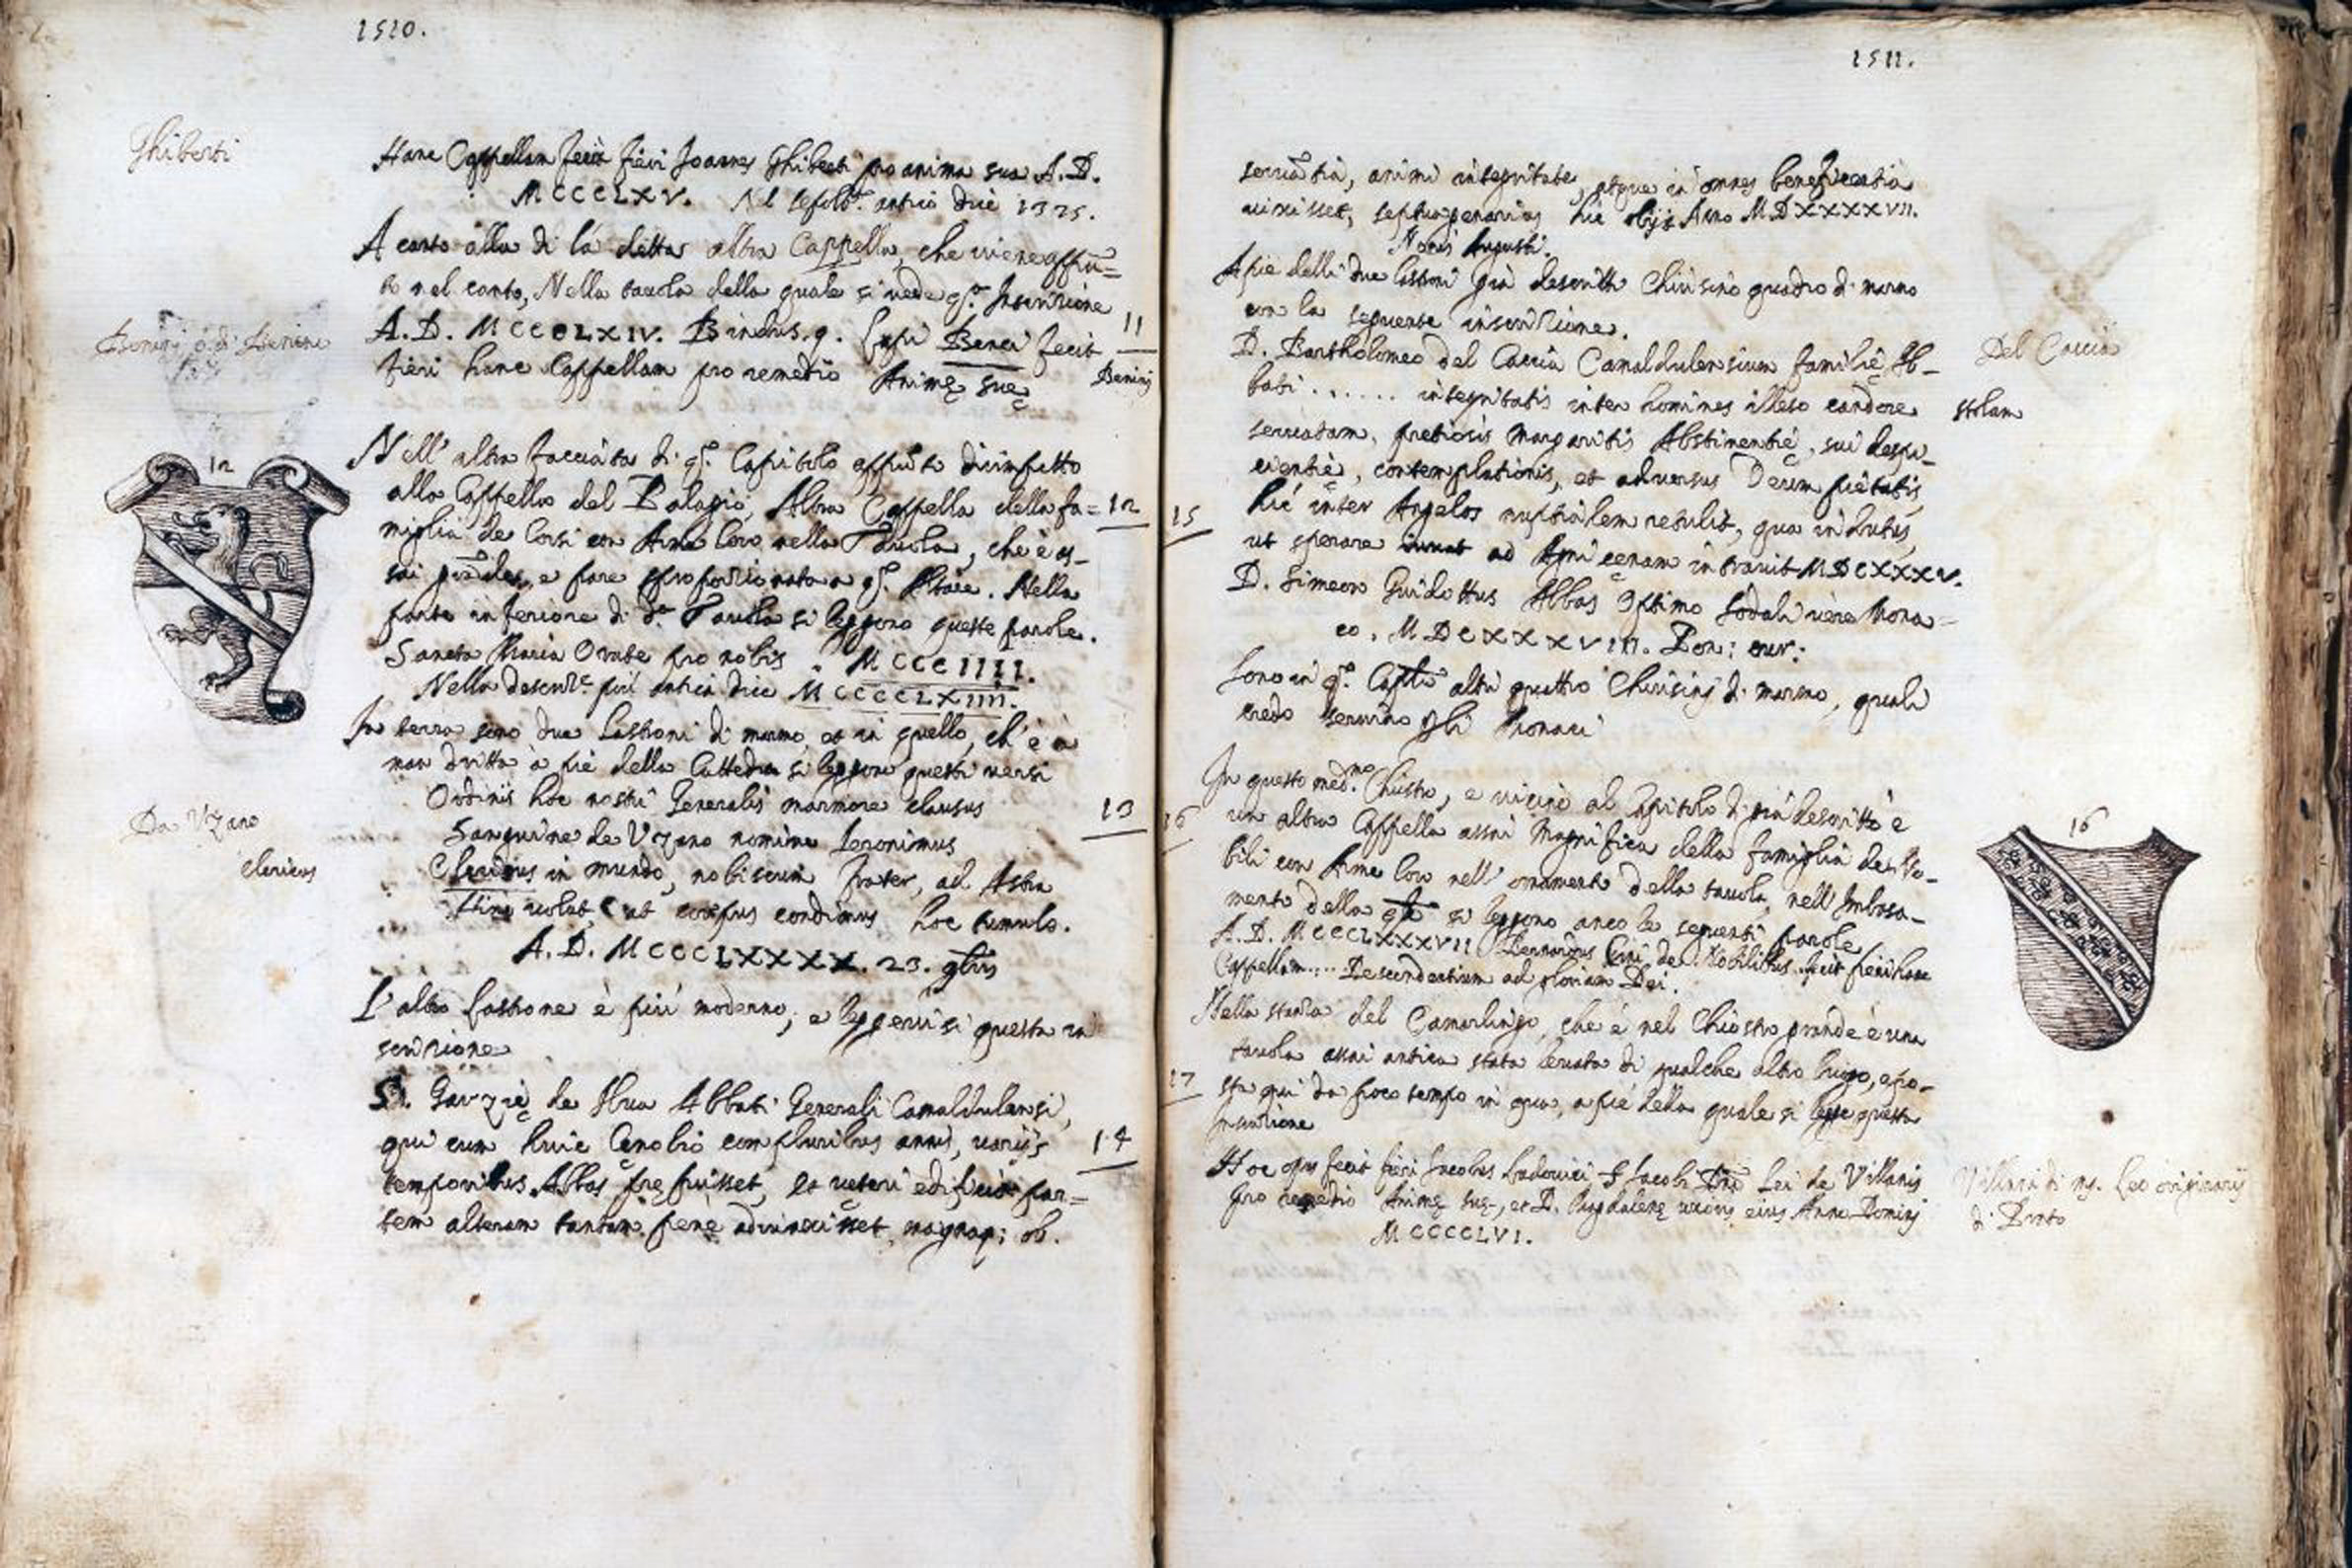 1510.
Ghiberti
Hanc Cappellam fecit fieri Joannes Ghiberti pro anima sua A.D.
MCCCLXV. Nel sepolt.º antico dice 1325.
A canto alla di là detta altra Cappella, che viene appũ=
to nel canto, Nella tavola della quale si vede q.ª Inscrizione
A.D. MCCCLXIV. Bindus. q. Lapi Benci fecit
fieri hanc Cappellam pro remedio Animę suę
11
Benini
Benini ò di Benino
Nell' altra facciata di q.º Capitolo appũto dirimpetto
alla Cappella del Palagio, Altra Cappella della fa=
miglia de Corsi con Arme loro nella Tavola, che è as-
sai grãde, e pare sproporzionata a q.º Altare. Nella
parte inferiore di d.ª Tavola si leggono queste parole.
Sancta Maria Orate pro nobis. MCCCIIII.
Nella descriz.e più antica dice MCCCCLXIIII.
12
12
In terra sono due Lastroni di marmo, et in quello, ch' è à
man dritta à piè della Cattedra si leggono questi versi
Ordinis hoc nostri Generalis marmore clausus
Sanguine de Uzano nomine Ieronimus
Clericus in mundo, nobiscum frater, ad Astra
Hinc volat, at corpus condimus hoc tumulo.
A.D. MCCCLXXXX. 23. 9bris
13
Da Uzano
clericus
L' altro lastrone è più moderno, e leggevisi questa in
scrizione
D. Garzię de Abua Abbati Generali Camaldulensi,
qui cum huic Cęnobio compluribus annis, varijs
temporibus Abbas pręfuisset, et veteri edificio par=
tem alteram tantam fenè adiunxisset, magnaq; ob.
14
1511.
servãtia, animi integritate, atque in omnes beneficentia
vixisset, septuagenarius hic obijt Anno MDXXXXVII.
Nonis Augusti.
A piè delli due lastroni già descritti Chiusino quadro di marmo
con la seguente inscrizione.
D. Bartholomeo del Caccia Camaldulensium familię Ab-
bati ...... integritatis inter homines illeso candore
servatam, pretiosis Margaritis Abstinentię, sui despi-
cientię, contemplationis, et adversus Deum pietatis,
hic inter Angelos nuptialem retulit, qua indutus,
ut sperare iuvat ad Agni cęnam intravit MDCXXXV.
D. Simeon Guidottus Abbas Optimo Sodali verè Mona=
co. MDCXXXVIII. Pon: cur:
15
Del Caccia
stolam
Sono in q.º Cap.lo altri quattro Chiusini di marmo, quali
credo servino p gli Monaci
In questo med.mo Chiostro, e vicino al Capitolo di già descritto è
un altra Cappella assai Magnifica della famiglia de No-
bili con Arme loro nell' ornamento della tavola, nell' Imbasa-
mento della q.le si leggono anco le seguenti parole
A.D. MCCCLXXXVII Bernardus Cini de Nobilibus fecit fieri hanc
Cappellam.... Descendentium ad gloriam Dei.
16
16
Nella stanza del Camarlingo, che è nel Chiostro grande è una
tavola assai antica stata levata di qualche altro luogo, e po-
sta qui da poco tempo in qua, a piè della quale si legge questa
Inscrizione
17
Hoc opus fecit fieri Jacobus Ludovici S Jacobi Dni Lei de Villanis
pro remedio Animę suę, et D. Magdalenę uxoris eius Anno Domini
MCCCCLVI.
Villani di m. Leo originarij
di Prato